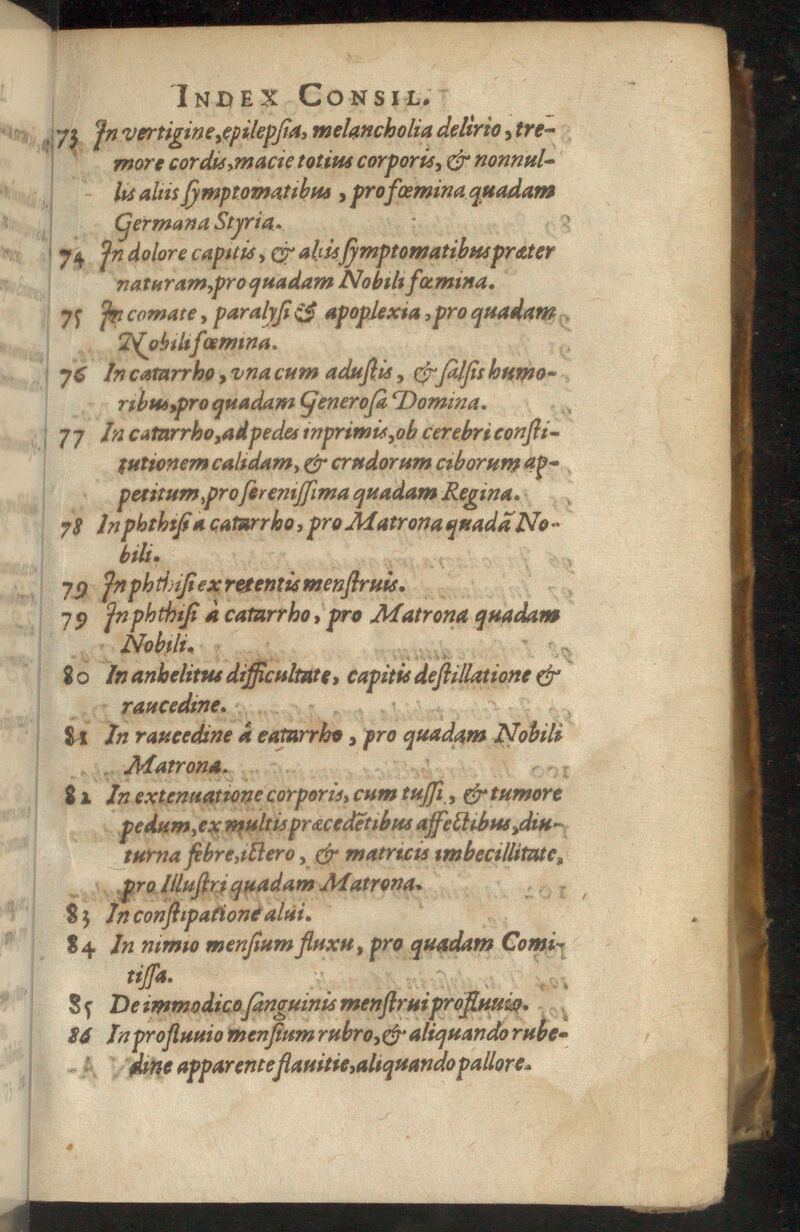 INDEX CONSIL.
73 In vertigine, epilepſia, melancholia delirio, tre-
more cordis, macie totius corporis, & nonnul-
lis aliis ſymptomatibus, pro fœmina quadam
Germana Styria.
74 In dolore capitis, & aliis ſymptomatibus præter
naturam, pro quadam Nobili fœmina.
75 In comate, paralyſi & apoplexia, pro quadam
Nobili fœmina.
76 In catarrho, vna cum aduſtis, & ſalſis humo-
ribus, pro quadam Generoſa Domina.
77 In catarrho, ad pedes inprimis, ob cerebri conſti-
tutionem calidam, & crudorum ciborum ap-
petitum, pro ſereniſſima quadam Regina.
78 In phthiſi a catarrho, pro Matrona quadã No-
bili.
79 In phthiſi ex retentis menſtruis.
79 In phthiſi à catarrho, pro Matrona quadam
Nobili.
80 In anhelitus difficultate, capitis deſtillatione &
raucedine.
81 In raucedine à catarrho, pro quadam Nobili
Matrona.
82 In extenuatione corporis, cum tuſſi, & tumore
pedum, ex multis præcedẽtibus affectibus, diu-
turna febre, ictero, & matricis imbecillitate,
pro Illuſtri quadam Matrona.
83 In conſtipatione alui.
84 In nimio menſium fluxu, pro quadam Comi-
tiſſa.
85 De immodico ſanguinis menſtrui profluuio.
86 In profluuio menſium rubro, & aliquando rube-
dine apparente flauitie, aliquando pallore.